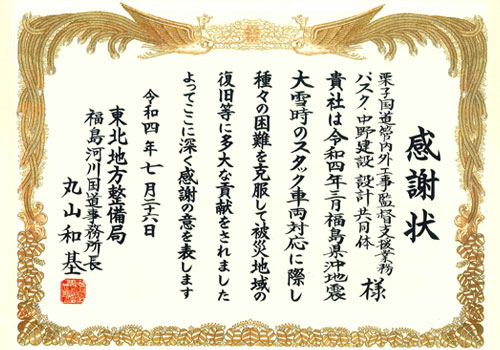 感謝状
栗子国道管内外工事監督支援業務
パスク・中野建設設計共同体 様
貴社は令和四年三月福島県沖地震
大雪時のスタック車両対応に際し
種々の困難を克服して被災地域の
復旧等に多大な貢献をされました
よってここに深く感謝の意を表します
令和四年七月二十六日
東北地方整備局
福島河川国道事務所長
丸山和基